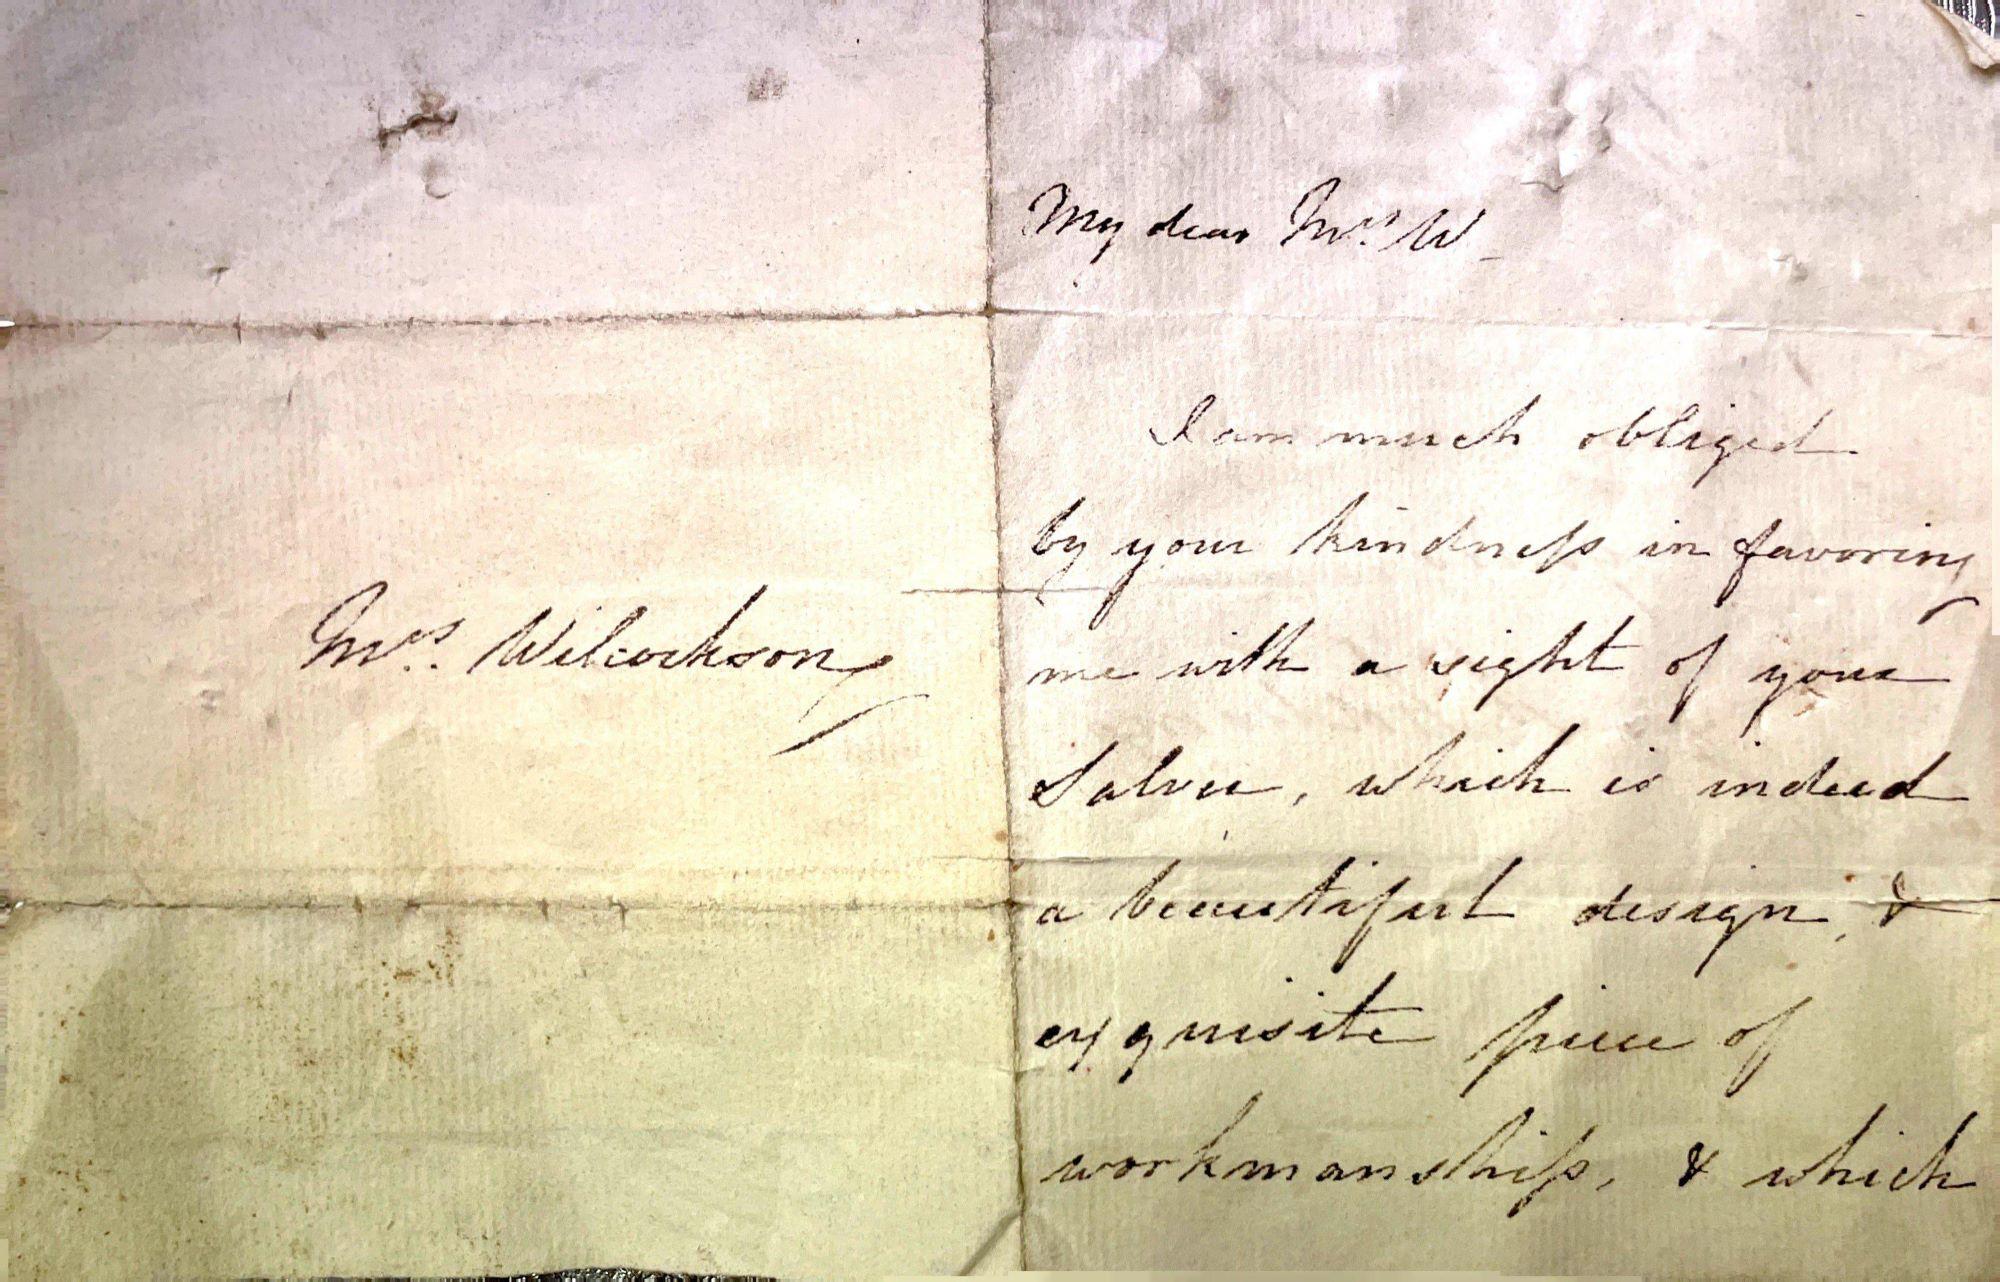 Mrs. Wilcockson
My dear Mrs. W
I am much obliged
by your kindness in favoring
me with a sight of your
Salver, which is indeed
a beautiful design, &
exquisite piece of
workmanship, & which